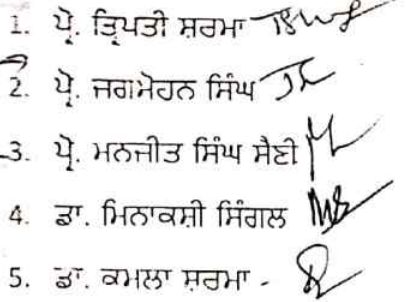 1. ਪ੍ਰੋ. ਤ੍ਰਿਪਤੀ ਸ਼ਰਮਾ
2. ਪ੍ਰੋ. ਜਗਮੋਹਨ ਸਿੰਘ
3. ਪ੍ਰੋ. ਮਨਜੀਤ ਸਿੰਘ ਸੈਣੀ
4. ਡਾ. ਮਿਨਾਕਸ਼ੀ ਸਿੰਗਲ
5. ਡਾ. ਕਮਲਾ ਸ਼ਰਮਾ -